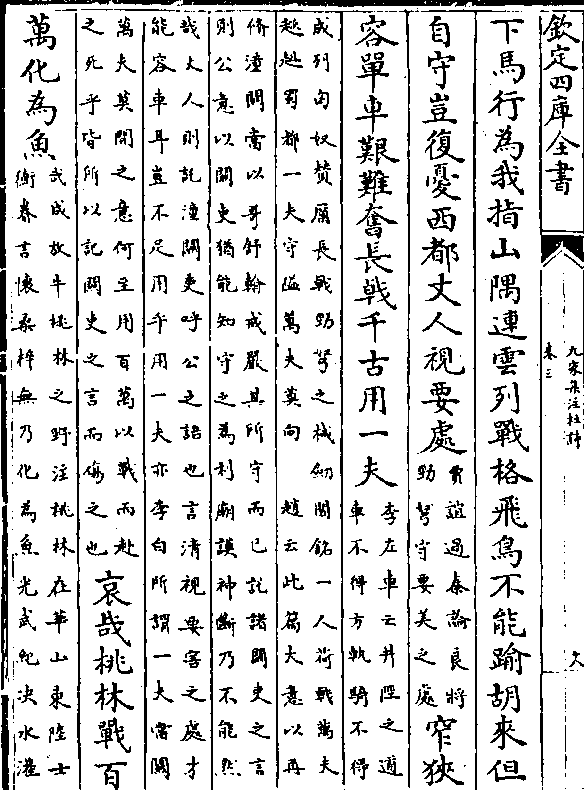 欽定四庫全書
九家集注杜詩
卷三
下馬行為我指山隅連雲列戰格飛鳥不能踰胡來但
自守豈復憂西都丈人視要處
賈誼過秦論良將
勁弩守要美之處
窄狹
容單車艱難奮長戟千古用一夫
李左車云井陘之道
車不得方軌騎不得
成列匈奴贊厲長戟勁弩之械劒閣銘一人荷戟萬夫
趑趄蜀都一夫守隘萬夫莫向 趙云此篇大意以再
脩潼關當以哥舒翰戒嚴其所守而已託諸關吏之言
則公意以關吏猶能知守之為利廟謨神斷乃不能然
哉丈人則託潼關吏呼公之語也言清視要害之處才
能容車耳豈不足用乎用一夫亦李白所謂一夫當關
萬夫莫開之意何至用百萬以戰而赴
之死乎皆所以記關吏之言而傷之也
哀哉桃林戰百
萬化為魚
武成放牛桃林之野注桃林在華山東陸士
衡眷言懷桑梓無乃化為魚光武紀決水灌